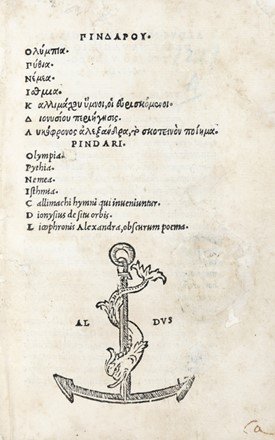 ΠΙΝΔΑΡΟΥ.
Ολύμπια.
Πύθια.
Νέμεα.
Ἴσθμια.
Καλλιμάχου ὕμνοι, οἱ εὑρισκόμενοι.
Διονυσίου περιήγησις.
Λυκόφρονος ἀλεξάνδρα, τὸ σκοτεινὸν ποίημα.
PINDARI.
Olympia.
Pythia.
Nemea.
Isthmia.
Callimachi hymni qui inveniuntur.
Dionysius de situ orbis.
Licophronis Alexandra, obscurum poema.
AL DVS